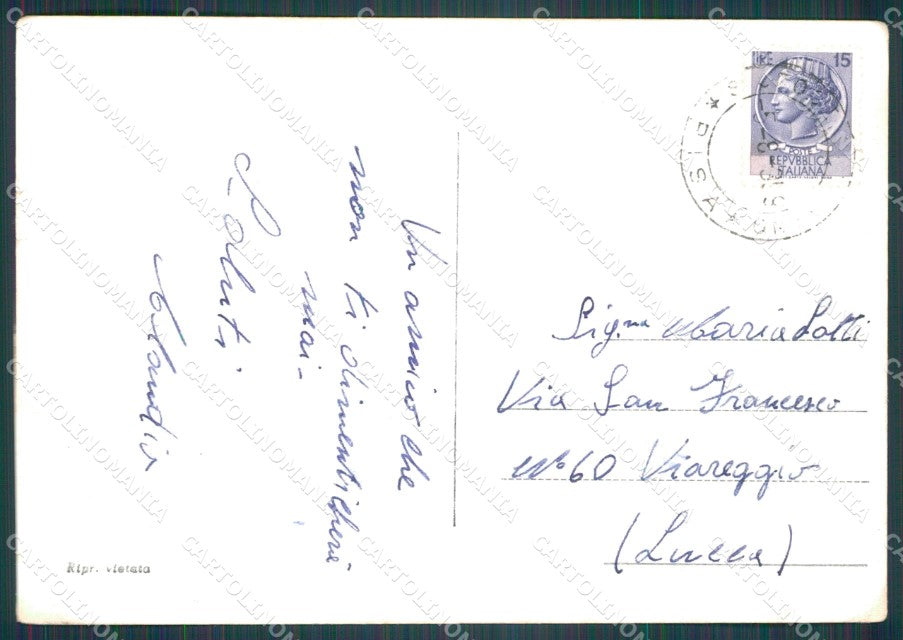 Un amico che
non ti dimenticherà
mai-
Saluti
Claudio
Sig.na Maria Lolli
Via San Francesco
N° 60 Viareggio
(Lucca)
LIRE 15
POSTE
REPVBBLICA
ITALIANA
PISA
Ripr. vietata
CARTOLINOMANIA